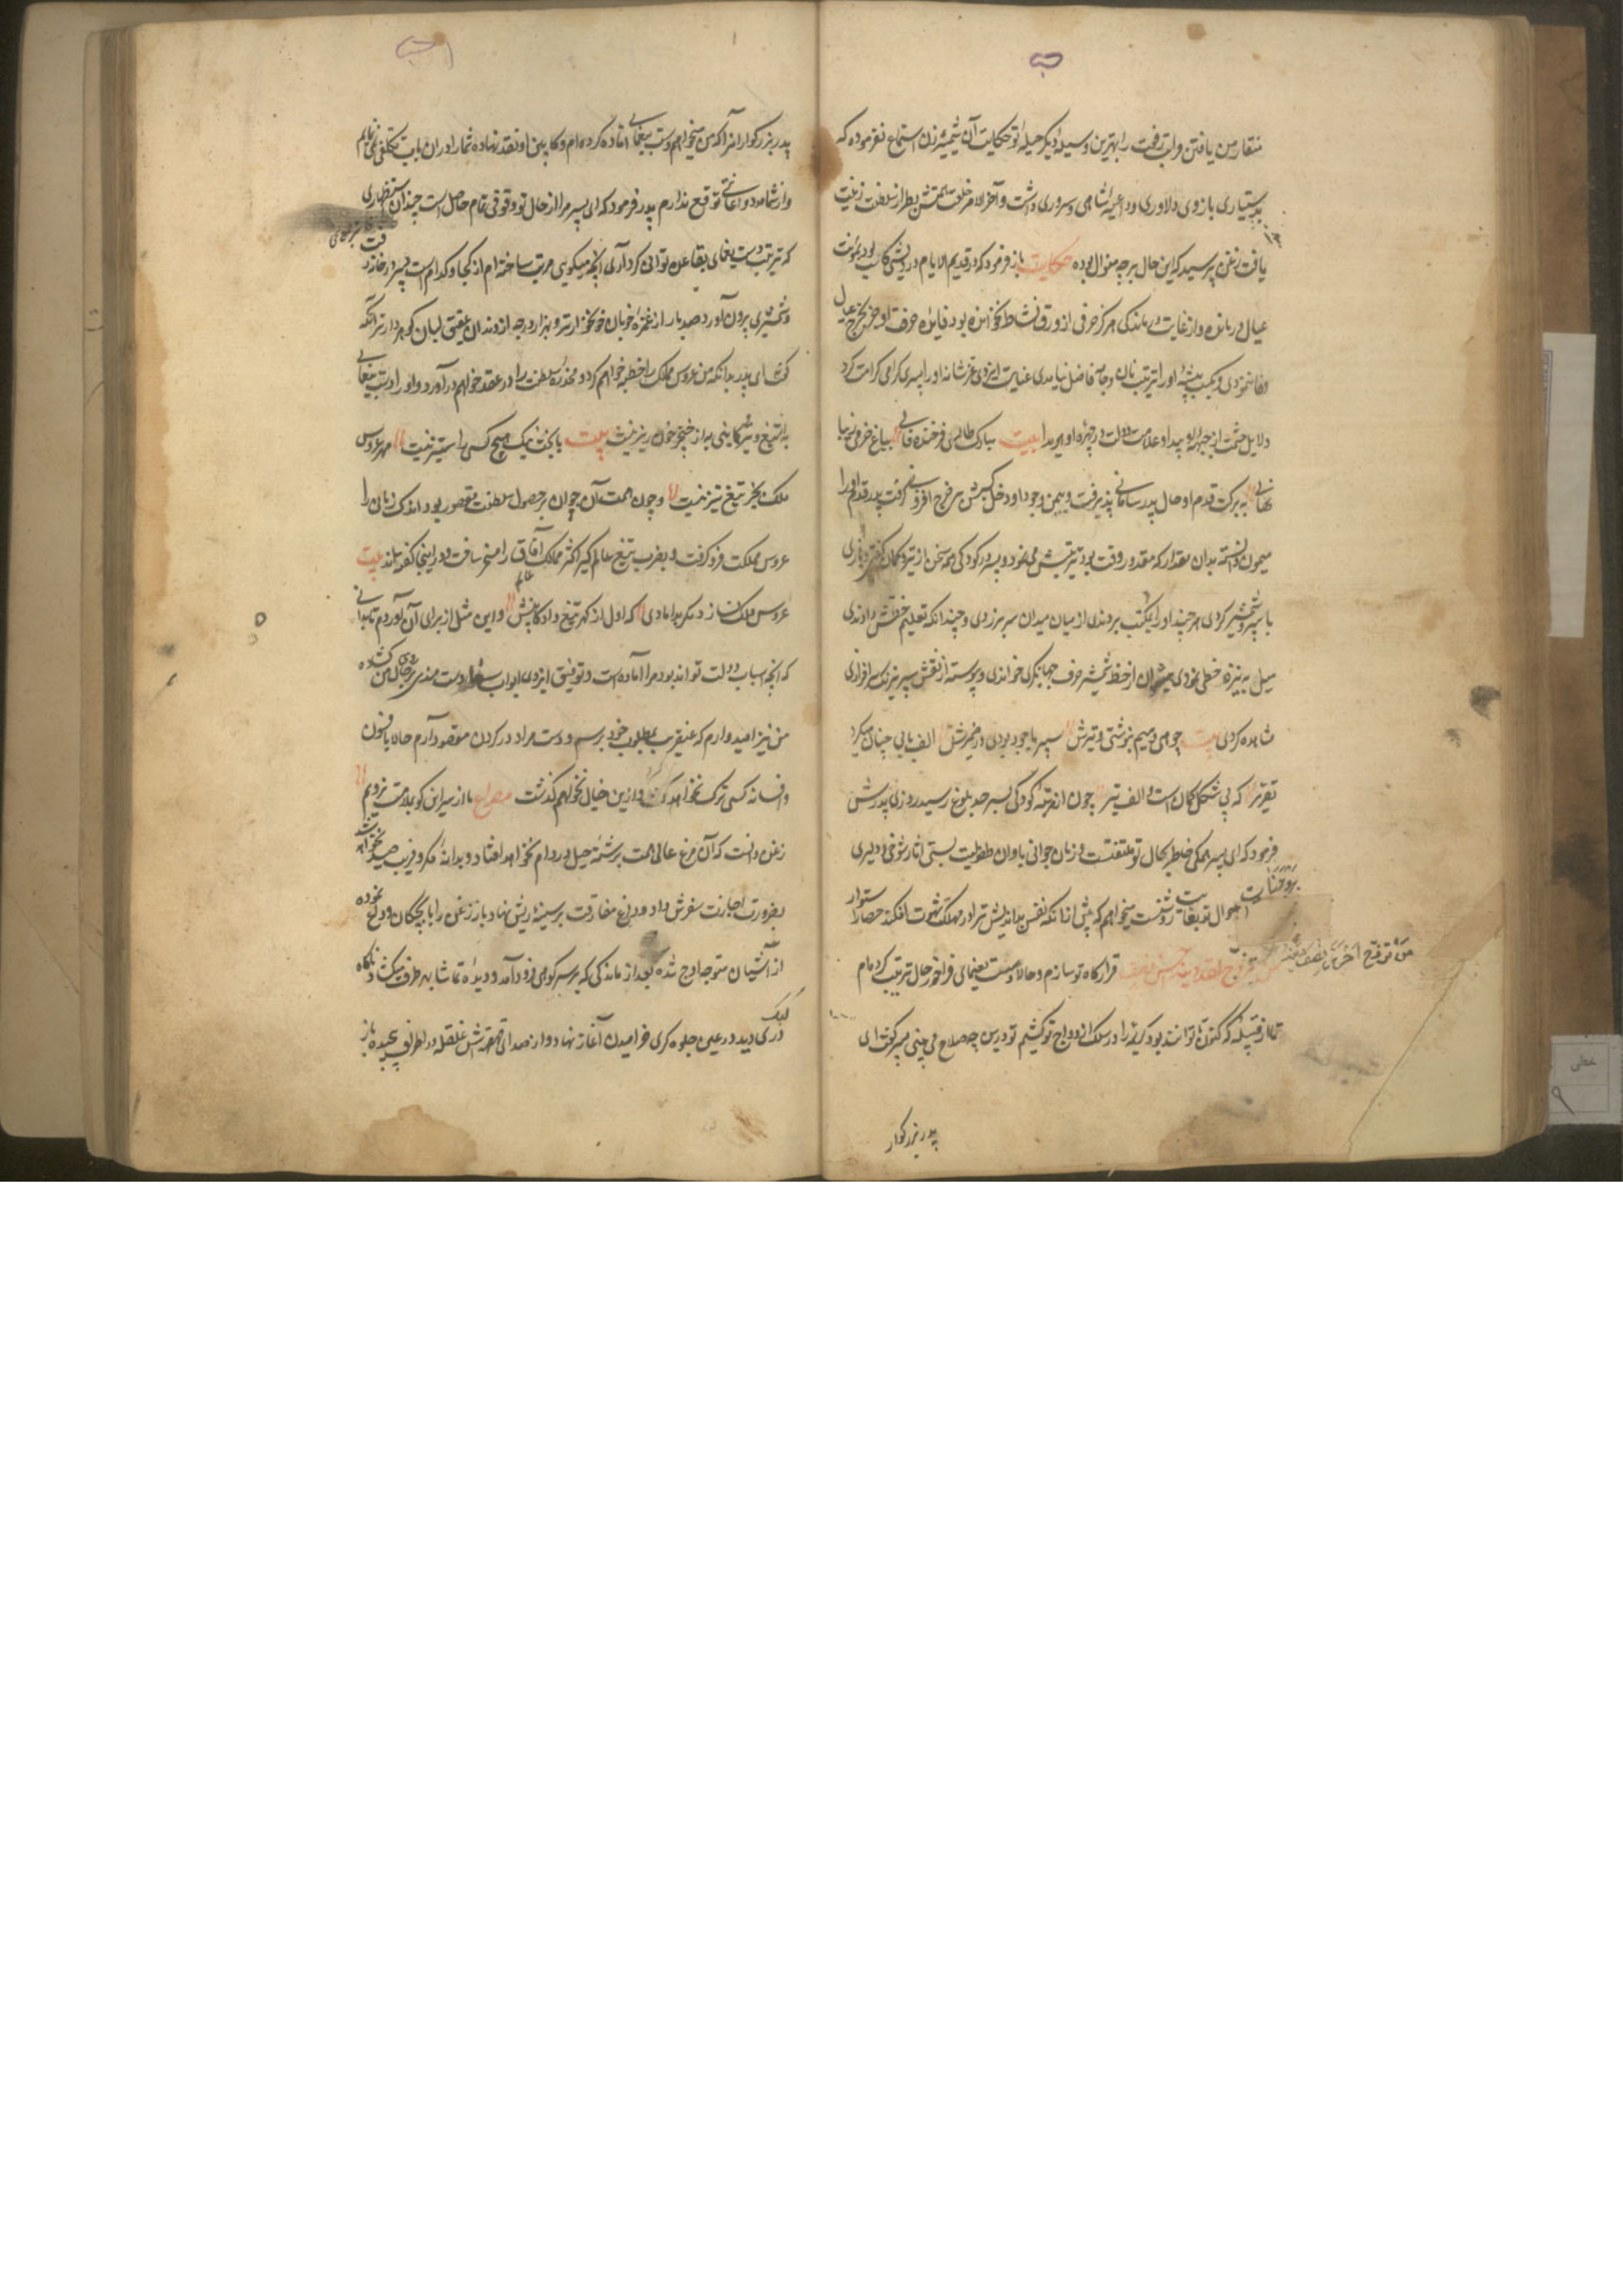 منقار من یافتن مراتب رفعت را بهترین وسیله دیگر حیله تو حکایت آن شمشیر زن استماع نفرموده که
بدستیاری بازوی دلاوری داعیه شاهی و سروری داشت و آخر الامر خلعت همتش بطراز سلطنت زینت
یافت زغن پرسید که این حال بر چه منوال بوده حکایت باز فرمود که در قدیم الایام درویشی کاسب بود بمؤنت
عیال درمانده و از غایت درماندگی هرگز حرفی از ورق نشاط نخوانده بود فایده حرفت او جز بخرج عیال
وفا ننمودی و بکسب پیشه او از ترتیب نان و جامه فاضل نیامدی عنایت ایزدی عز شانه او را پسری کرامت کرد
دلایل حشمت از جبهه او پیدا و علامت دولت در چهره او هویدا بیت مبارک طالعی فرخنده فالی بباغ خرمی زیبا
نهالی ببرکت قدم او حال پدر سامانی پذیرفت و بیمن وجود او دخل کسبش بر خرج افزونی گرفت پدر قدم او را
میمون دانسته بدان مقدار که مقدور وقت بود تربیتش می نمود و پسر در کودکی همه سخن از تیر و کمان گفتی و بازی
با سپر و شمشیر کردی هر چند او را بمکتب بردندی از میان میدان سر بر زدی و چندانکه تعلیم خطش دادندی
میل به نیزه خطی نمودی از خط شمشیر حرف جهانگیری خواندی و پیوسته از نقش سپر سرافرازی
مشاهده کردی بیت چو هی و میم بنوشتی
که بی شکل کمان است و الف تیر چون از مرتبه کودکی بسر حد بلوغ رسید روزی پدرش
فرمود که ای پسر همگی خاطر بحال تو ملتفتست و زمان جوانی باوان طفولیت نسبتی آثار شوخی و دلیری
احوال تو بغایت روشنست میخواهم که پیش از آنکه نفس بد اندیش ترا در مهلکه شهوت افکند حصار استوار
من تزوج فقد قرارگاه تو سازم و حالا دست پیمانی فراخور حال ترتیب کرده ام
تا از قبیله که کفو ما توانند بود کریمه را در سلک ازدواج تو کشیم تو درین چه صلاح می بینی پسر گفت ای
پدر بزرگوار
پدر بزرگوار آنرا که من میخواهم دست پیمانی آماده کرده ام و کابین او نقد نهاده شما را در آن باب تکلفی نمی نمایم
و از شما مدد و اعانتی توقع ندارم پدر فرمود که ای پسر مرا از حال تو وقوفی تمام حاصل است چندان استظهاری
که ترتیب دست پیمانی بقاعده توانی کرد آری آنچه میگویی مرتب ساخته ام از کجا و کدام است پسر در خانه رفت
و شمشیری برون آورد صد بار از غمزه خوبان خونخوار تر و هزار درجه از دندان عقیق لبان گوهردار تر آنگه
گفت ای پدر بدانکه من عروس مملکت را خطبه خواهم کرد و مخدره سلطنت را در عقد خواهم درآورد و او را دست پیمانی
به از تیغ و کابینی به از خنجر خون ریز نیست بیت با بخت نیک هیچ کسی را ستیز نیست مهر عروس
ملک بجز تیغ تیز نیست و چون همت آن جوان بر حصول سلطنت مقصور بود اندک زمان را
عروس مملکت فرو گرفت و بضرب تیغ عالم گیر اکثر ممالک آفاق را مسخر ساخت و در اینجا گفته اند بیت
عروس ملک بدامادی که اول از گهر تیغ داد کابینش و این مثل از برای آن آوردم تا بدانی
که آنچه اسباب دولت تواند بود مرا آماده است و توفیق ایزدی ابواب سعادت مندی بر روی من گشاده
من نیز امیدوارم که عنقریب بمطلوب خود برسم و دست مراد در گردن مقصود آرم حالا بافسون
و افسانه کسی ترک نخواهم کرد و ازین خیال نخواهم گذشت مصراع ما از سر این کو بملامت نرویم
زغن دانست که آن مرغ عالی همت برشته حیل در دام نخواهد افتاد و بدانه مکر و فریب صید نخواهد شد
بضرورت اجازت سفرش داد و داغ مفارقت بر سینه ریش نهاد و باز زغن را با بچگان وداع نموده
از آشیان متوجه اوج شده بعد از ماندگی که بر سر کوهی فرود آمد و دیده تماشا بهر طرف میگشاد ناگاه
کبک دری دید در عین جلوه گری خرامیدن آغاز نهاد و از صدای قهقهه اش غلغله در اطراف پیچیده باز